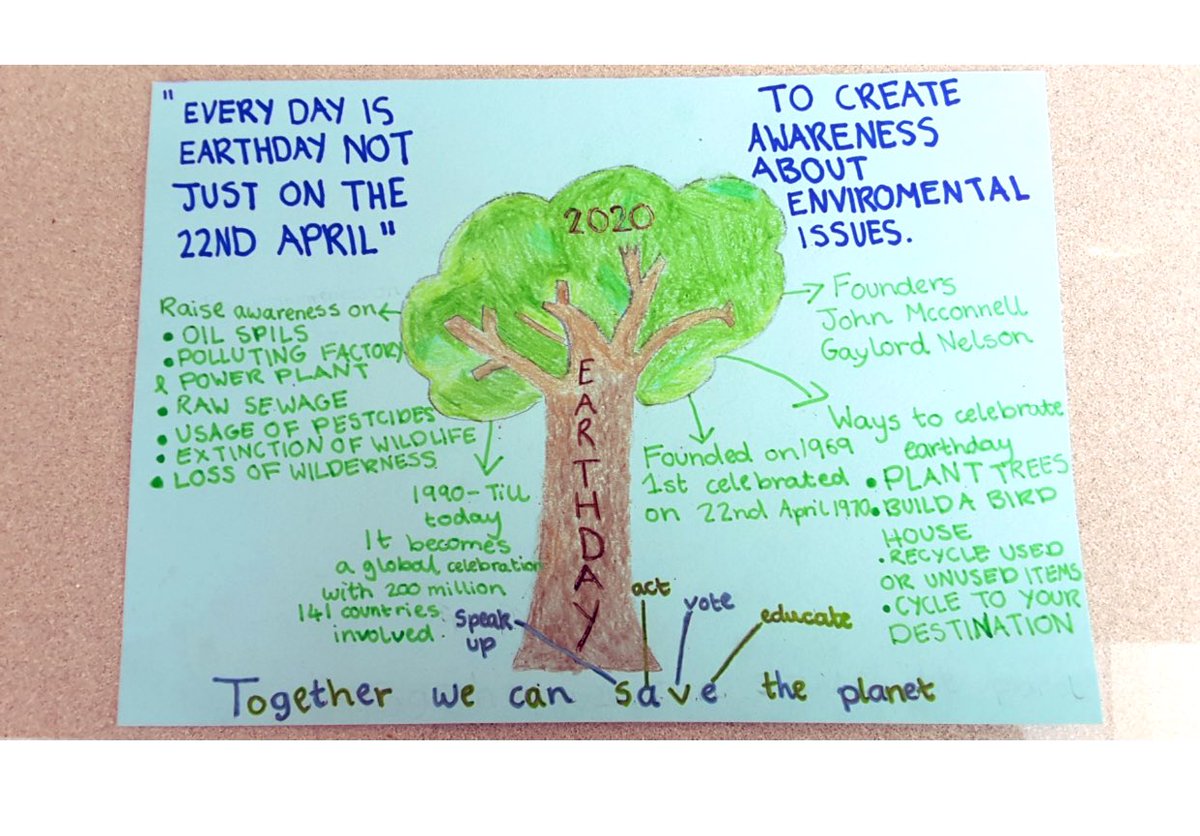 "EVERY DAY IS
EARTHDAY NOT
JUST ON THE
22ND APRIL"
TO CREATE
AWARENESS
ABOUT
ENVIROMENTAL
ISSUES.
2020
EARTHDAY
Raise awareness on
• OIL SPILS
• POLLUTING FACTORY
& POWER PLANT
• RAW SEWAGE
• USAGE OF PESTCIDES
• EXTINCTION OF WILDLIFE
• LOSS OF WILDERNESS
1990- Till
today
It becomes
a global celebration
with 200 million
141 countries
involved.
Founders
John Mcconnell
Gaylord Nelson
Founded on 1969
1st celebrated
on 22nd April 1970.
Ways to celebrate
earthday
• PLANT TREES
• BUILD A BIRD
HOUSE
• RECYCLE USED
OR UNUSED ITEMS
• CYCLE TO YOUR
DESTINATION
Speak
up
act
vote
educate
Together we can save the planet